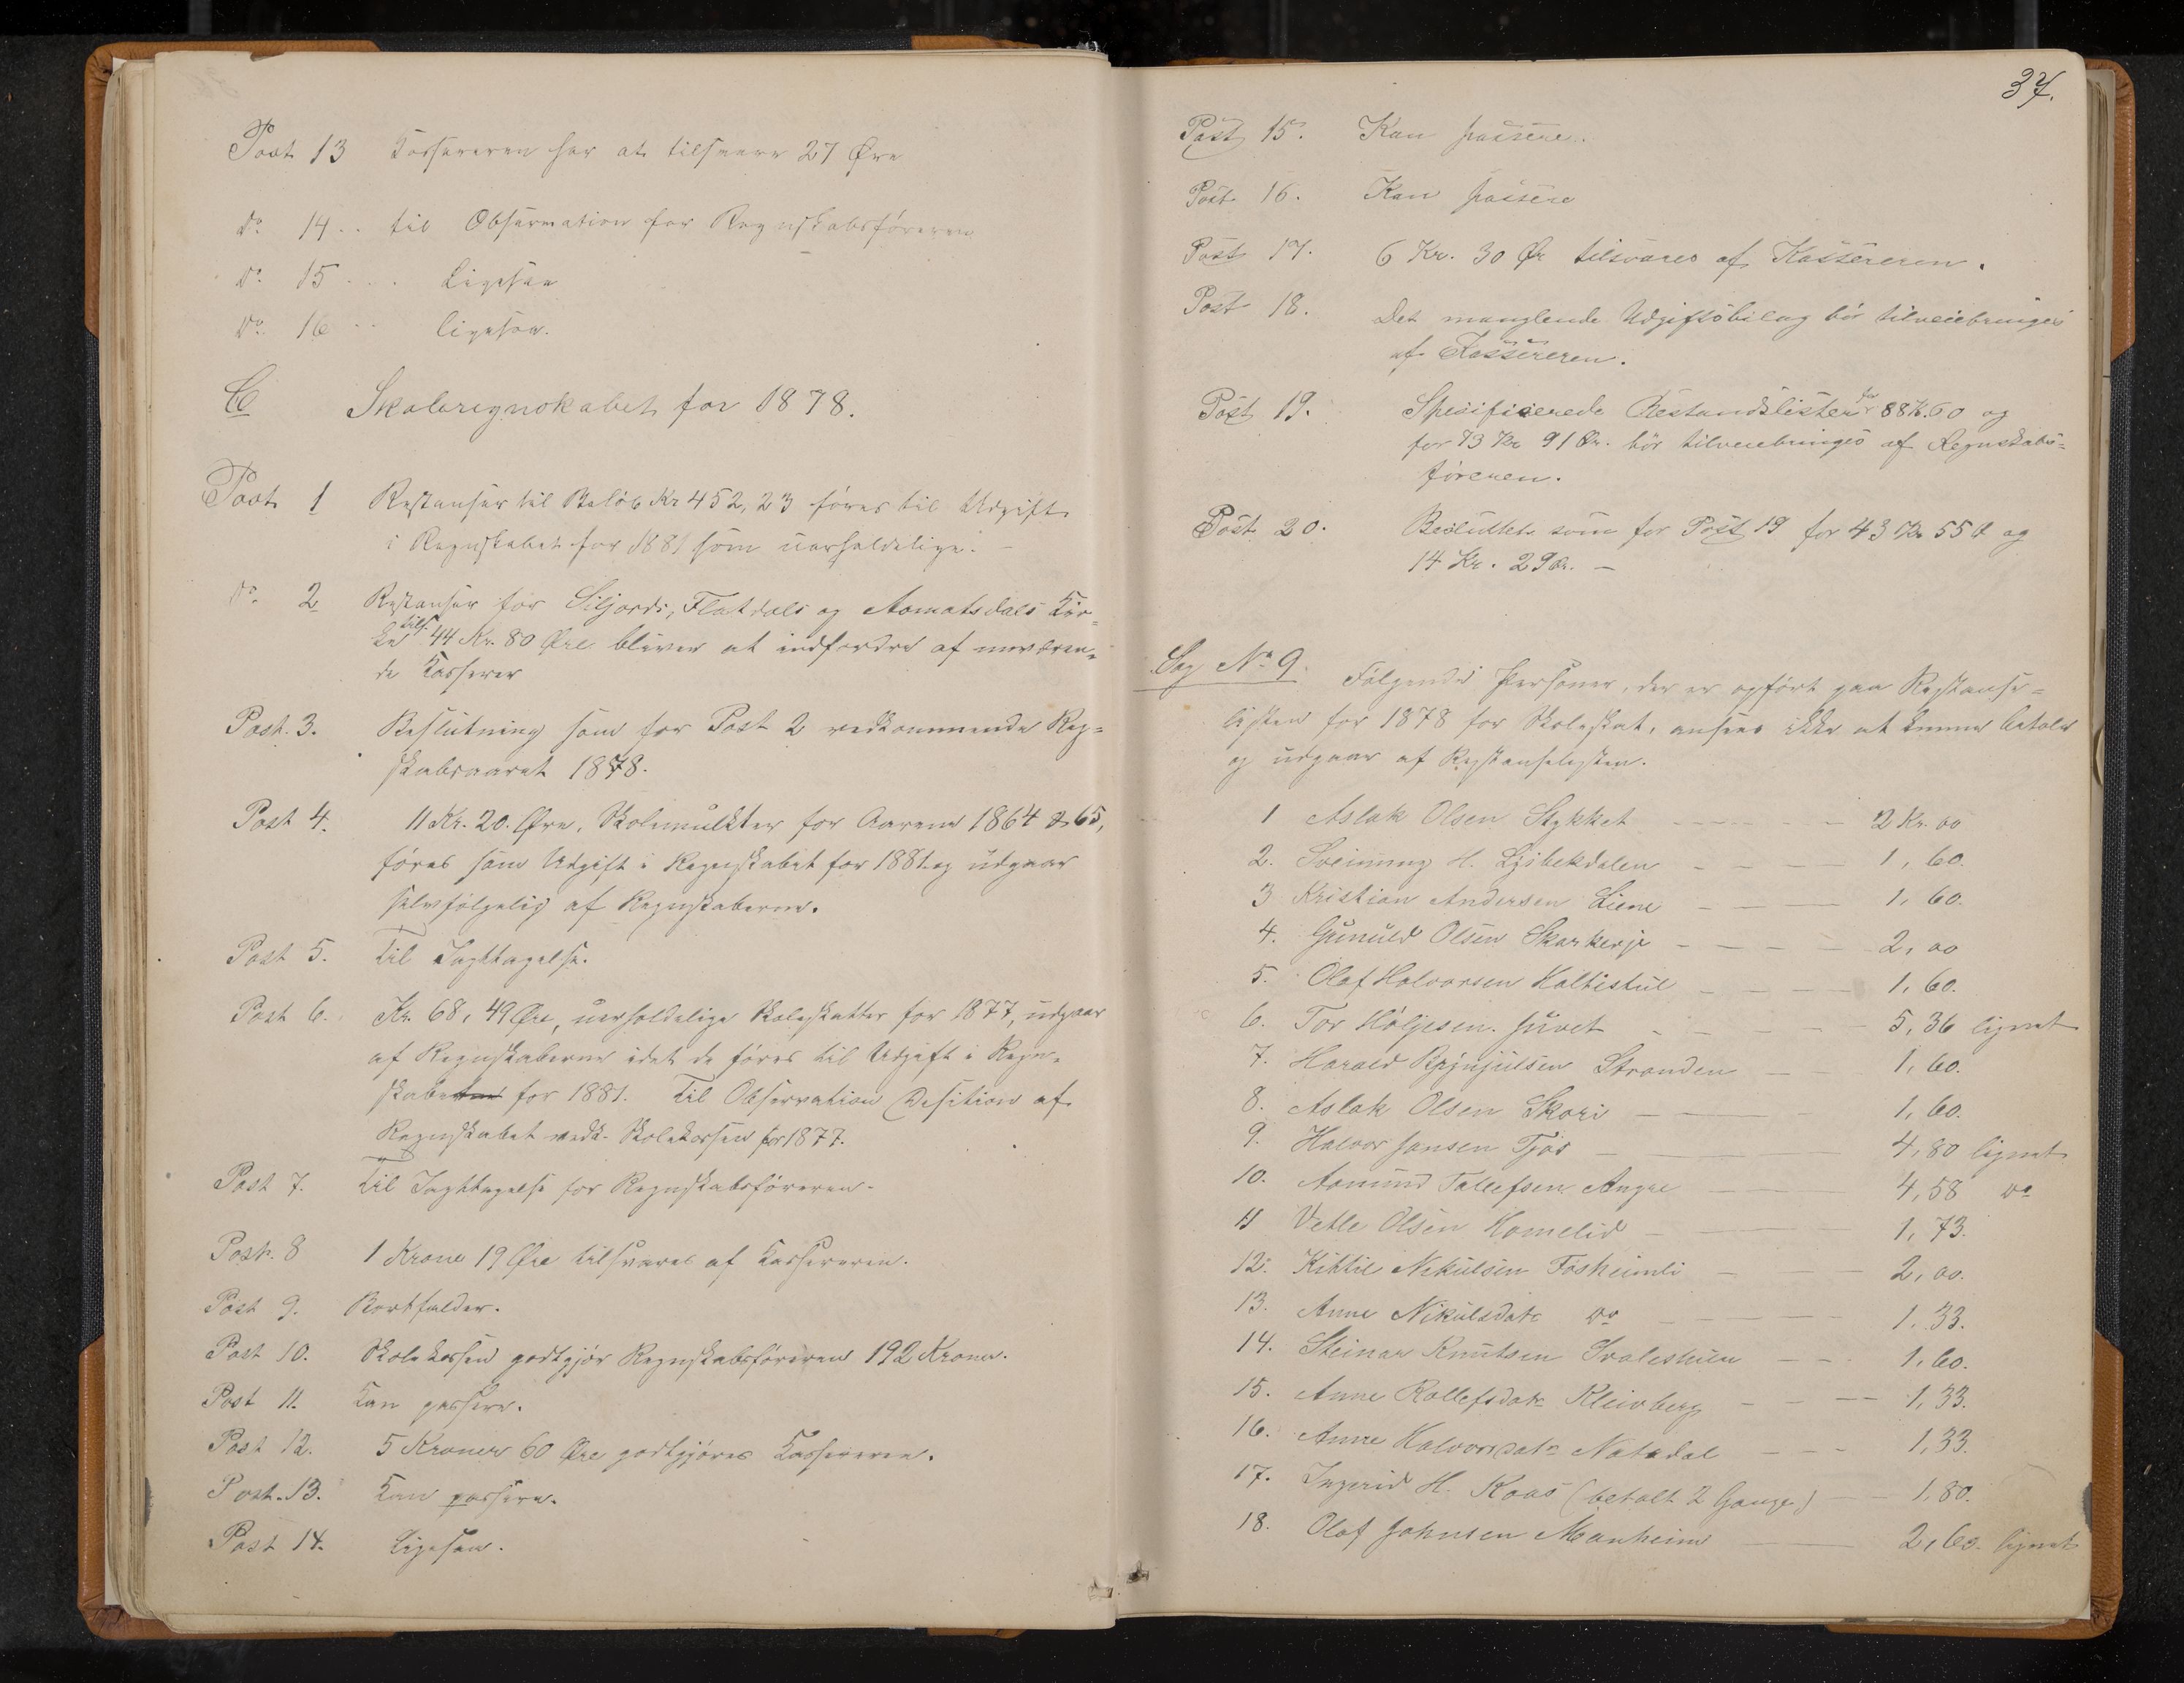 Post 13 Kassereren har at tilsvare 27 Øre
do 14 .. til Observation for Regnskabsføreren
do 15 ... Ligesaa
do 16 .. ligesaa.
C Skoleregnskabet for 1878.
Post 1 Restanser til Beløb Kr 452,23 føres til Udgift
i Regnskabet for 1881 som uerholdelige. –
do 2 Restanser for Siljords, Flatdals og Aamotsdals Kir-
ke tils. 44 Kr. 80 Øre bliver at indfordre af nuværen-
de Kasserer
Post. 3. Beslutning som for Post 2 vedkommende Reg-
skabsaaret 1878.
Post 4. 11 Kr. 20. Øre, Skolemulkter for Aarene 1864 & 65,
føres som Udgift i Regnskabet for 1881 og udgaar
selvfølgelig af Regnskaberne.
Post 5. Til Iagttagelse.
Post 6. Kr. 68, 49 Øre, uerholdelige Skoleskatter for 1877, udgaar
af Regnskaberne idet de føres til Udgift i Regn-
skabet for 1881. Til Observation Desition af
Regnskabet vedk. Skolekassen for 1877.
Post 7. Til Iagttagelse for Regnskabsføreren.
Post. 8 1 Krone 19 Øre tilsvares af Kassereren.
Post 9. Bortfalder.
Post 10. Skolekassen godtgjør Regnskabsføreren 192 Kroner.
Post 11. Kan passere.
Post 12. 5 Kroner 60 Øre godtgjøres Kassereren.
Post. 13. Kan passere.
Post 14. Ligesaa.
37.
Post 15. Kan passere.
Post 16. Kan passere
Post 17. 6 Kr. 30 Ør tilsvares af Kassereren.
Post 18. Det manglende Udgiftsbilag bør tilveiebringes
af Kassereren.
Post 19. Spesifiserede Restandslister for 88 K. 60 og
for 73 Kr 91 Ør. bør tilveiebringes af Regnskabs=
føreren.
Post 20. Besluttet som for Post 19 for 43 Kr 55 Ø og
14 Kr. 29 Ør. –
Sag No 9. Følgende Personer, der er opført paa Restanse=
listen for 1878 for Skoleskat, ansees ikke at kunne betale
og udgaar af Restanselisten.
1 Aslak Olsen Stykket 2 Kr. 00
2. Sveinung H. Ljsbekdalen 1, 60.
3 Kristian Andersen Liene 1, 60.
4. Gunuld Olsen Skarkerje 2, 00
5. Olaf Halvorsen Haltistul 1, 60.
6. Tor Høljesen Juvet 5, 36 lignet
7. Harald Brynjulsen Stranden 1, 60.
8. Aslak Olsen Skori 1, 60.
9. Halvor Jansen Tjos 4, 80 lignet
10. Aamund Tollefsen Angre 4, 58 do
11 Vetle Olsen Homelid 1, 73.
12. Kittil Nikulsen Fosheimli 2, 00.
13. Anne Nikulsdatr do 1, 33.
14. Steinar Knutsen Svalestuen 1, 60.
15. Anne Rollefsdatr Kleivberg 1, 33.
16. Anne Halvorsdatr Natadal 1, 33.
17. Ingerid H. Kaas (betalt 2 Gange) 1, 80.
18. Olaf Johnsen Manheim 2, 60. lignet